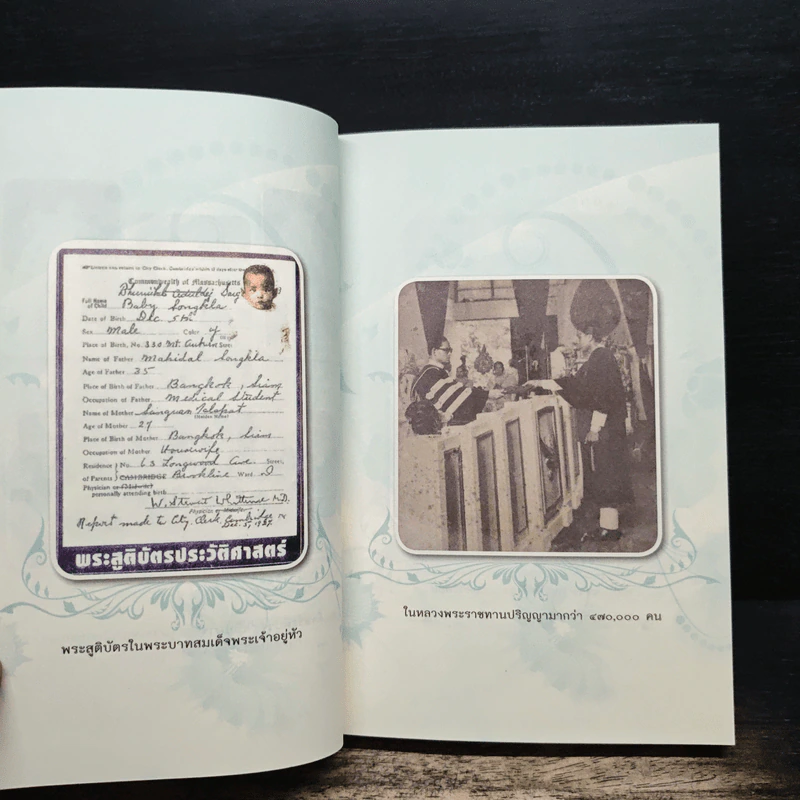 Commonwealth of Massachusetts
Full Name of Child. Baby Songkla
Date of Birth Dec. 5th
Sex Male Color y
Place of Birth, No. 330 Mt. Auburn Street
Name of Father Mahidal Songkla
Age of Father 35
Place of Birth of Father Bangkok, Siam
Occupation of Father Medical Student
Name of Mother Sanguan Talapat
(Maiden Name)
Age of Mother 27
Place of Birth of Mother Bangkok, Siam
Occupation of Mother Housewife
Residence No. 63 Longwood Ave. Street,
of Parents CAMBRIDGE Brookline Ward
Physician or Midwife
personally attending birth
W. Stewart Whittemore M.D.
Physician or Midwife
Report made to City Clerk, Cambridge
พระสูติบัตรประวัติศาสตร์
พระสูติบัตรในพระบาทสมเด็จพระเจ้าอยู่หัว
ในหลวงพระราชทานปริญญามากว่า ๔๗๐,๐๐๐ คน